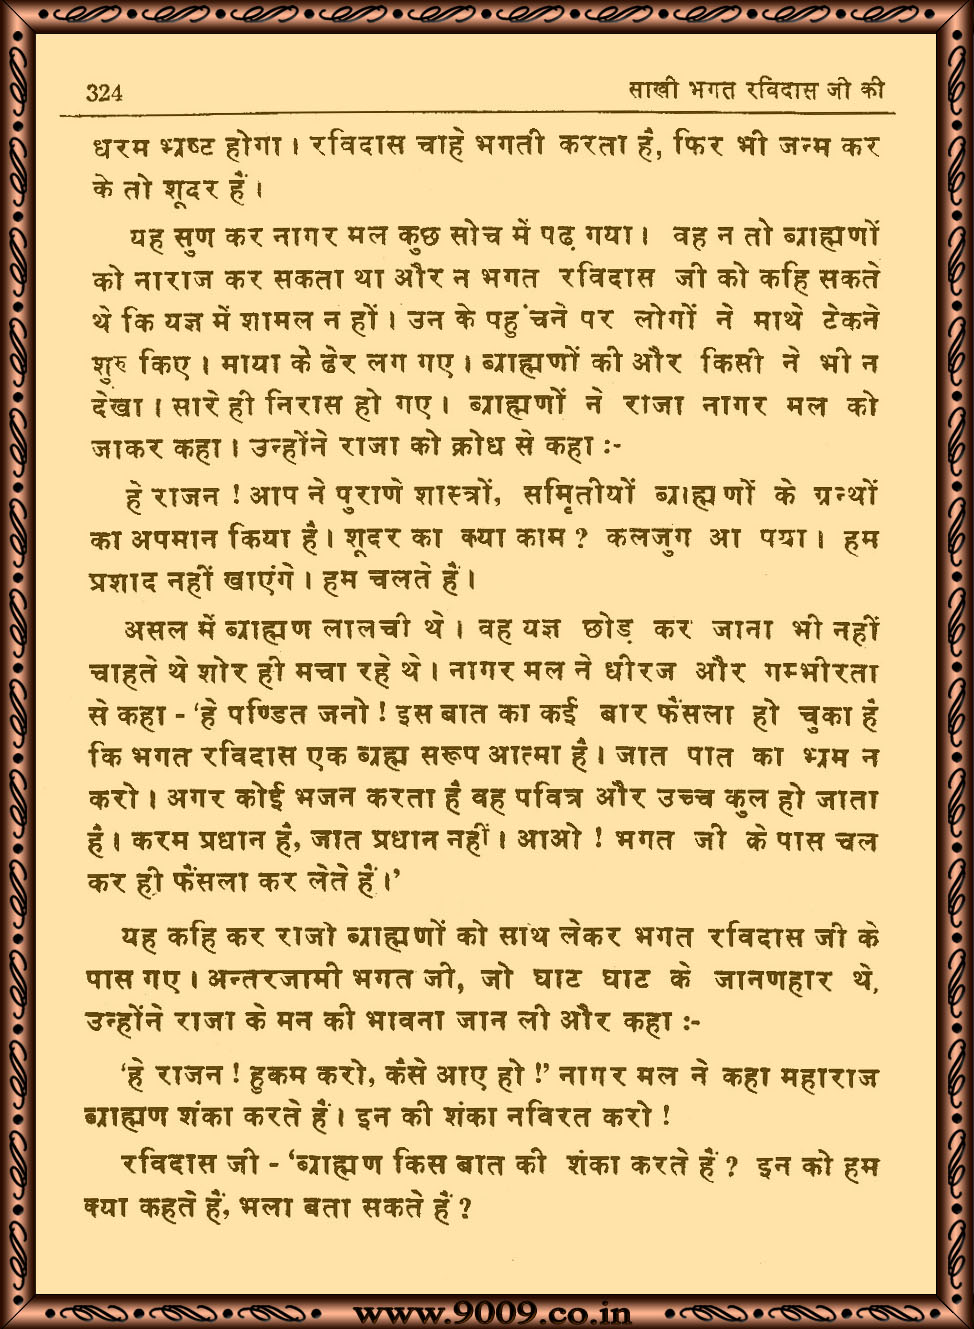 324 साखी भगत रविदास जी की
धरम भ्रष्ट होगा । रविदास चाहे भगती करता है, फिर भी जन्म कर
के तो शूदर हैं ।
यह सुण कर नागर मल कुछ सोच में पढ़ गया । वह न तो ब्राह्मणों
को नाराज कर सकता था और न भगत रविदास जी को कहि सकते
थे कि यज्ञ में शामल न हों । उन के पहुंचने पर लोगों ने माथे टेकने
शुरु किए । माया के ढेर लग गए । ब्राह्मणों की और किसी ने भी न
देखा । सारे ही निरास हो गए । ब्राह्मणों ने राजा नागर मल को
जाकर कहा । उन्होंने राजा को क्रोध से कहा :-
हे राजन ! आप ने पुराणे शास्त्रों, समिृतीयों ब्राह्मणों के ग्रन्थों
का अपमान किया है । शूदर का क्या काम ? कलजुग आ पया । हम
प्रशाद नहीं खाएंगे । हम चलते हैं ।
असल में ब्राह्मण लालची थे । वह यज्ञ छोड़ कर जाना भी नहीं
चाहते थे शोर ही मचा रहे थे । नागर मल ने धीरज और गम्भीरता
से कहा - ‘हे पण्डित जनो ! इस बात का कई बार फैंसला हो चुका है
कि भगत रविदास एक ब्रह्म सरूप आत्मा है । जात पात का भ्रम न
करो । अगर कोई भजन करता है वह पवित्र और उच्च कुल हो जाता
है । करम प्रधान है, जात प्रधान नहीं । आओ ! भगत जी के पास चल
कर ही फैंसला कर लेते हैं ।’
यह कहि कर राजो ब्राह्मणों को साथ लेकर भगत रविदास जी के
पास गए । अन्तरजामी भगत जी, जो घाट घाट के जानणहार थे,
उन्होंने राजा के मन की भावना जान ली और कहा :-
‘हे राजन ! हुकम करो, कैसे आए हो !’ नागर मल ने कहा महाराज
ब्राह्मण शंका करते हैं । इन की शंका नविरत करो !
रविदास जी - ‘ब्राह्मण किस बात की शंका करते हैं ? इन को हम
क्या कहते हैं, भला बता सकते हैं ?
www.9009.co.in